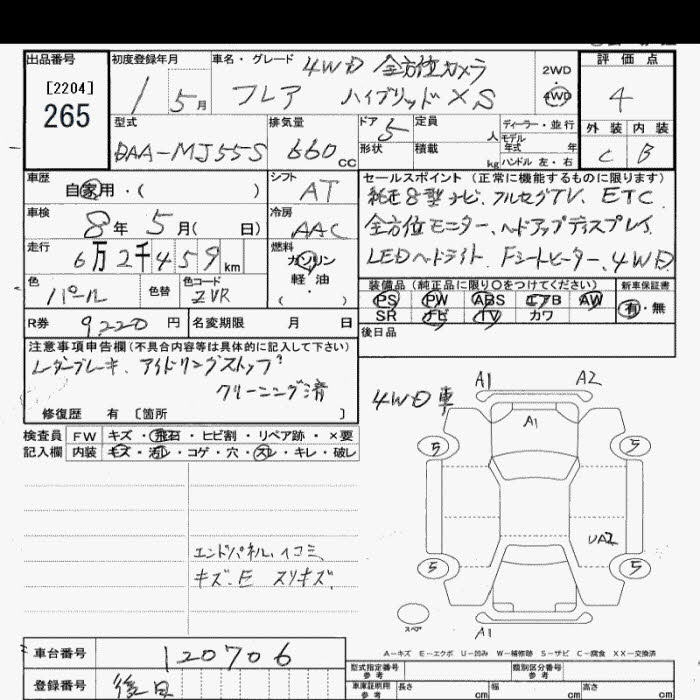 出品番号 初度登録年月 車名・グレード 4WD 全方位カメラ 2WD 評価点
[2204] 1 5月 フレア ハイブリッドXS 4WD 4
265
型式 排気量 ドア 5 定員 人 ディーラー・並行 外装 内装
モデル年式 年
DAA-MJ55S 660cc 形状 積載 kg ハンドル 左・右 C B
車歴 シフト セールスポイント(正常に機能するものに限ります)
自家用・( ) AT 純正8型ナビ、フルセグTV、ETC
車検 冷房 全方位モニター、ヘッドアップディスプレイ
8年 5月( 日) AAC LEDヘッドライト、Fシートヒーター、4WD
走行 燃料
6万2千459km ガソリン
色 色替 色コード 軽油 装備品(純正品に限り○をつけてください) 新車保証書
パール ZVR ・( ) PS PW ABS エアB AW 有・無
SR ナビ TV カワ
R券 9,220円 名変期限 月 日 後日品
注意事項申告欄(不具合内容等は具体的に記入して下さい)
レーダーブレーキ、アイドリングストップ
クリーニング済
修復歴 有 [箇所 ]
4WD車 A1 A2
A1
検査員 FW キズ・飛石・ヒビ割・リペア跡・×要
記入欄 内装 キズ・汚レ・コゲ・穴・スレ・キレ・破レ
5 5
UA2
エンドパネル、イコミ
キズ、E スリキズ、
5 5
スペア
A1
A-キズ E-エクボ U-凹み W-補修跡 S-サビ C-腐食 XX-交換済
車台番号 120706
型式指定番号 参考 類別区分番号 参考
登録番号 後日
車庫証明用 参考 長さ cm 幅 cm 高さ cm